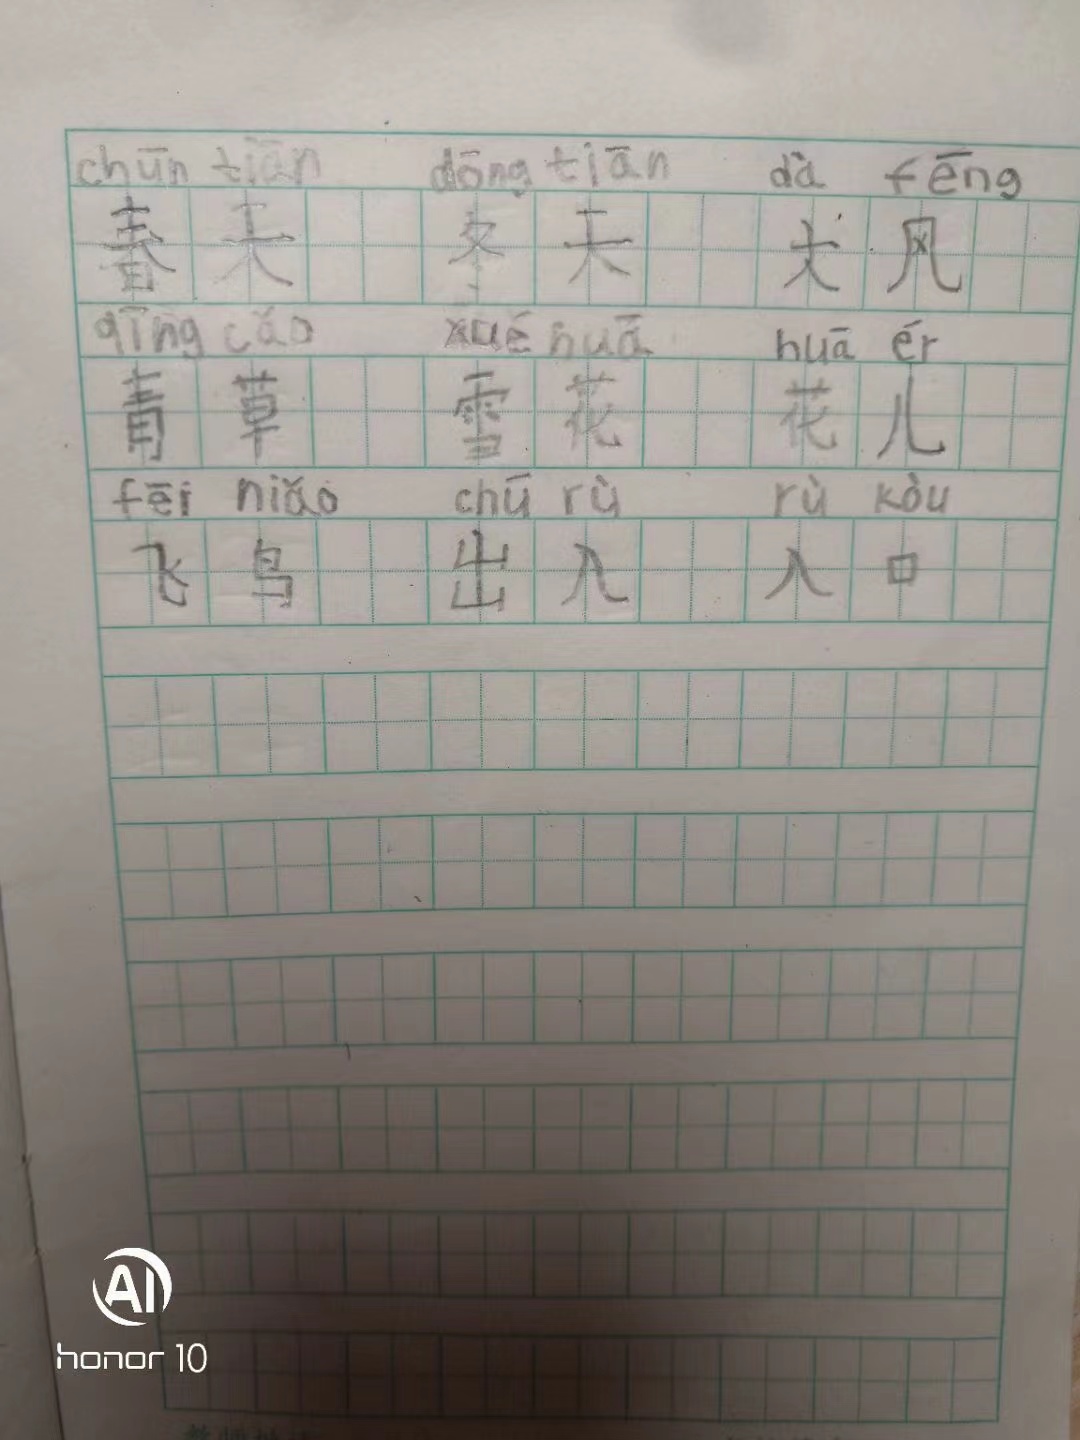 chūn tiān dōng tiān dà fēng
春天 冬天 大风
qīng cǎo xuě huā huā ér
青草 雪花 花儿
fēi niǎo chū rù rù kǒu
飞鸟 出入 入口
AI
honor 10